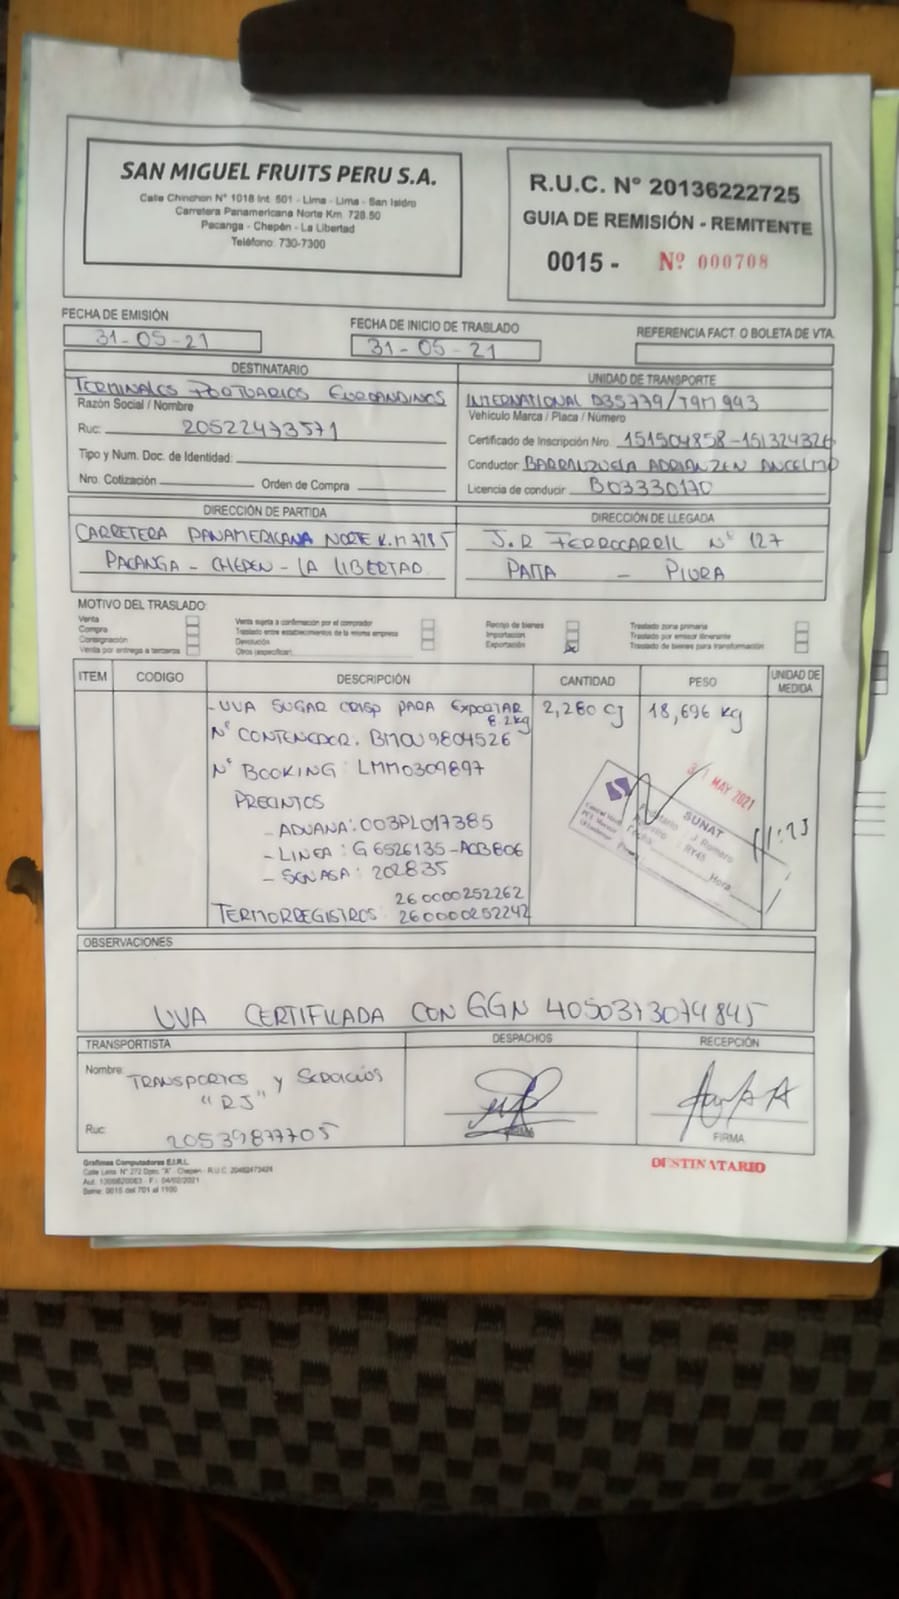 SAN MIGUEL FRUITS PERU S.A.
Calle Chinchon N° 1018 Int. 501 - Lima - Lima - San Isidro
Carretera Panamericana Norte Km. 728.50
Pacanga - Chepén - La Libertad
Teléfono: 730-7300
R.U.C. N° 20136222725
GUIA DE REMISIÓN - REMITENTE
0015 - Nº 000708
FECHA DE EMISIÓN
31-05-21
FECHA DE INICIO DE TRASLADO
31-05-21
REFERENCIA FACT. O BOLETA DE VTA.
DESTINATARIO
TERMINALES PORTUARIOS EUROANDINOS
Razón Social / Nombre
Ruc: 20522473571
Tipo y Num. Doc. de Identidad:
Nro. Cotización Orden de Compra
UNIDAD DE TRANSPORTE
INTERNATIONAL D3S779/T9M993
Vehículo Marca / Placa / Número
Certificado de Inscripción Nro. 151504858-151324326
Conductor BARRANZUELA ADRIANZEN ANCELMO
Licencia de conducir B03330170
DIRECCIÓN DE PARTIDA
CARRETERA PANAMERICANA NORTE K.M 728.5
PACANGA - CHEPEN - LA LIBERTAD
DIRECCIÓN DE LLEGADA
J.R FERROCARRIL N° 127
PAITA - PIURA
MOTIVO DEL TRASLADO:
Venta
Compra
Consignación
Venta por entrega a terceros
Venta sujeta a confirmación por el comprador
Traslado entre establecimientos de la misma empresa
Devolución
Otros (especificar)
Recojo de bienes
Importación
Exportación
Traslado zona primaria
Traslado por emisor itinerante
Traslado de bienes para transformación
ITEM CODIGO DESCRIPCIÓN CANTIDAD PESO UNIDAD DE MEDIDA
- UVA SUGAR CRISP PARA EXPORTAR 2,280 CJ 18,696 kg
8.2kg
N° CONTENEDOR. BMOU9804526
N° BOOKING: LMM0309897
PRECINTOS
- ADUANA: 003PL017385
- LINEA: G6526135-ACB806
- SENASA: 202835
260000252262
TERMORREGISTROS: 260000252242
MAY 2021
SUNAT
J. Romero
RY45
Hora
11:25
OBSERVACIONES
UVA CERTIFICADA CON GGN 4050373074845
TRANSPORTISTA
Nombre: TRANSPORTES y SERVICIOS
"RJ"
Ruc: 20539877705
DESPACHOS
RECEPCIÓN
FIRMA
Grafimes Computadores E.I.R.L.
Calle Lena. N° 272 Dpto. "A" - Chepen - R.U.C. 20482473424
F.I. 04/02/2021
Serie: 0015 del 701 al 1100
DESTINATARIO